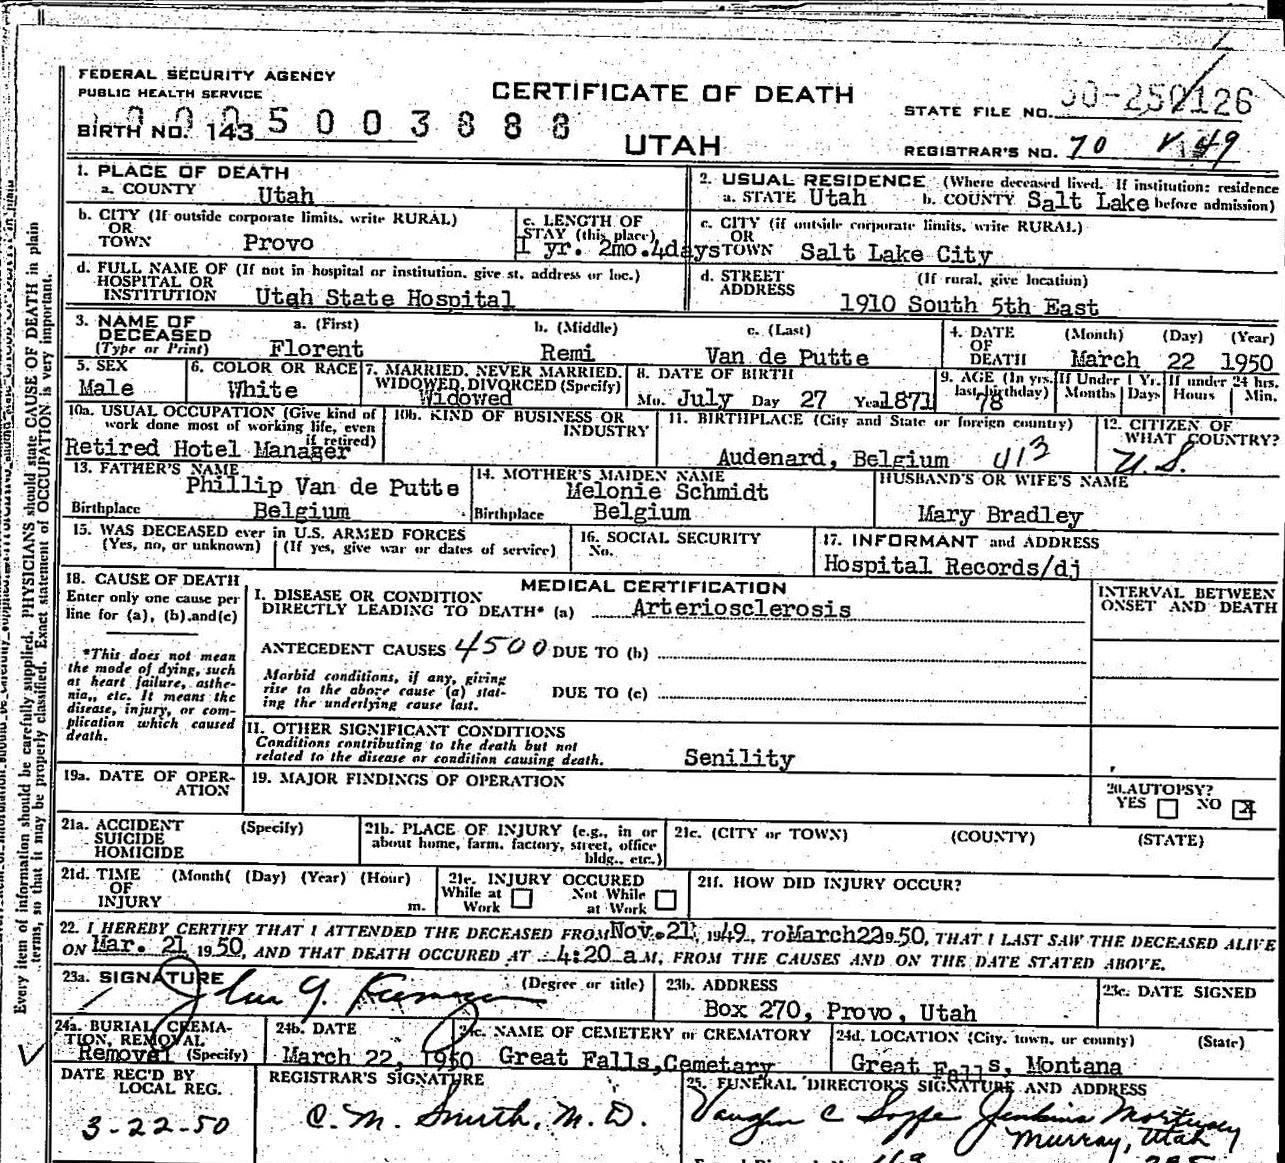 FEDERAL SECURITY AGENCY
PUBLIC HEALTH SERVICE
CERTIFICATE OF DEATH
UTAH
BIRTH NO. 143 5003888
STATE FILE NO. 50-250126
REGISTRAR'S NO. 70 49
1. PLACE OF DEATH
a. COUNTY Utah
2. USUAL RESIDENCE (Where deceased lived. If institution: residence before admission)
a. STATE Utah b. COUNTY Salt Lake
b. CITY (If outside corporate limits, write RURAL) OR TOWN Provo
c. LENGTH OF STAY (this place) 1 yr. 2mo. 4days
c. CITY (if outside corporate limits, write RURAL) OR TOWN Salt Lake City
d. FULL NAME OF (If not in hospital or institution, give st. address or loc.) HOSPITAL OR INSTITUTION Utah State Hospital
d. STREET ADDRESS (If rural, give location) 1910 South 5th East
3. NAME OF DECEASED (Type or Print)
a. (First) Florent b. (Middle) Remi c. (Last) Van de Putte
4. DATE OF DEATH (Month) (Day) (Year) March 22 1950
5. SEX Male
6. COLOR OR RACE White
7. MARRIED, NEVER MARRIED, WIDOWED, DIVORCED (Specify) Widowed
8. DATE OF BIRTH Mo. July Day 27 Year 1871
9. AGE (In yrs. last birthday) 78
If Under 1 Yr. Months Days
If under 24 hrs. Hours Min.
10a. USUAL OCCUPATION (Give kind of work done most of working life, even if retired) Retired Hotel Manager
10b. KIND OF BUSINESS OR INDUSTRY
11. BIRTHPLACE (City and State or foreign country) Audenard, Belgium 413
12. CITIZEN OF WHAT COUNTRY? U.S.
13. FATHER'S NAME Phillip Van de Putte
Birthplace Belgium
14. MOTHER'S MAIDEN NAME Melonie Schmidt
Birthplace Belgium
HUSBAND'S OR WIFE'S NAME Mary Bradley
15. WAS DECEASED ever in U.S. ARMED FORCES
(Yes, no, or unknown) (If yes, give war or dates of service)
16. SOCIAL SECURITY No.
17. INFORMANT and ADDRESS Hospital Records/dj
18. CAUSE OF DEATH
Enter only one cause per line for (a), (b), and (c)
*This does not mean the mode of dying, such as heart failure, asthenia,, etc. It means the disease, injury, or complication which caused death.
MEDICAL CERTIFICATION
I. DISEASE OR CONDITION DIRECTLY LEADING TO DEATH* (a) Arteriosclerosis
ANTECEDENT CAUSES 4500 DUE TO (b)
Morbid conditions, if any, giving rise to the above cause (a) stating the underlying cause last.
DUE TO (c)
INTERVAL BETWEEN ONSET AND DEATH
II. OTHER SIGNIFICANT CONDITIONS
Conditions contributing to the death but not related to the disease or condition causing death. Senility
19a. DATE OF OPERATION
19. MAJOR FINDINGS OF OPERATION
20. AUTOPSY?
YES NO X
21a. ACCIDENT SUICIDE HOMICIDE (Specify)
21b. PLACE OF INJURY (e.g., in or about home, farm, factory, street, office bldg., etc.)
21c. (CITY or TOWN) (COUNTY) (STATE)
21d. TIME OF INJURY (Month( (Day) (Year) (Hour) m.
21e. INJURY OCCURED
While at Work Not While at Work
21f. HOW DID INJURY OCCUR?
22. I HEREBY CERTIFY THAT I ATTENDED THE DECEASED FROM Nov. 21, 1949, TO March 22 1950, THAT I LAST SAW THE DECEASED ALIVE
ON Mar. 21 1950, AND THAT DEATH OCCURED AT 4:20 a M, FROM THE CAUSES AND ON THE DATE STATED ABOVE.
23a. SIGNATURE (Degree or title)
23b. ADDRESS Box 270, Provo, Utah
23c. DATE SIGNED
24a. BURIAL, CREMATION, REMOVAL (Specify) Removal
24b. DATE March 22, 1950
24c. NAME OF CEMETERY or CREMATORY Great Falls, Cemetary
24d. LOCATION (City, town, or county) (State) Great Falls, Montana
DATE REC'D BY LOCAL REG. 3-22-50
REGISTRAR'S SIGNATURE C. M. Smith, M.D.
25. FUNERAL DIRECTOR'S SIGNATURE AND ADDRESS
Vaughn C Jenkins Mortuary
Murray, Utah
PHYSICIANS should state CAUSE OF DEATH in plain
Every item of information should be carefully supplied.
terms, so that it may be properly classified. Exact statement of OCCUPATION is very important.